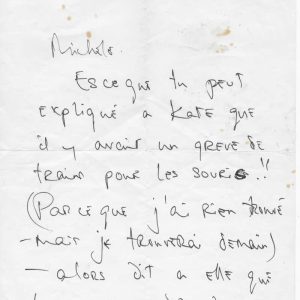 Michèle.
Esceque tu peut
expliqué a Kate que
il y avait un greve de
trains pour les souris!!
(Parceque j'ai rien trouvé
-mais je trouverai demain)
- alors dit a elle qui